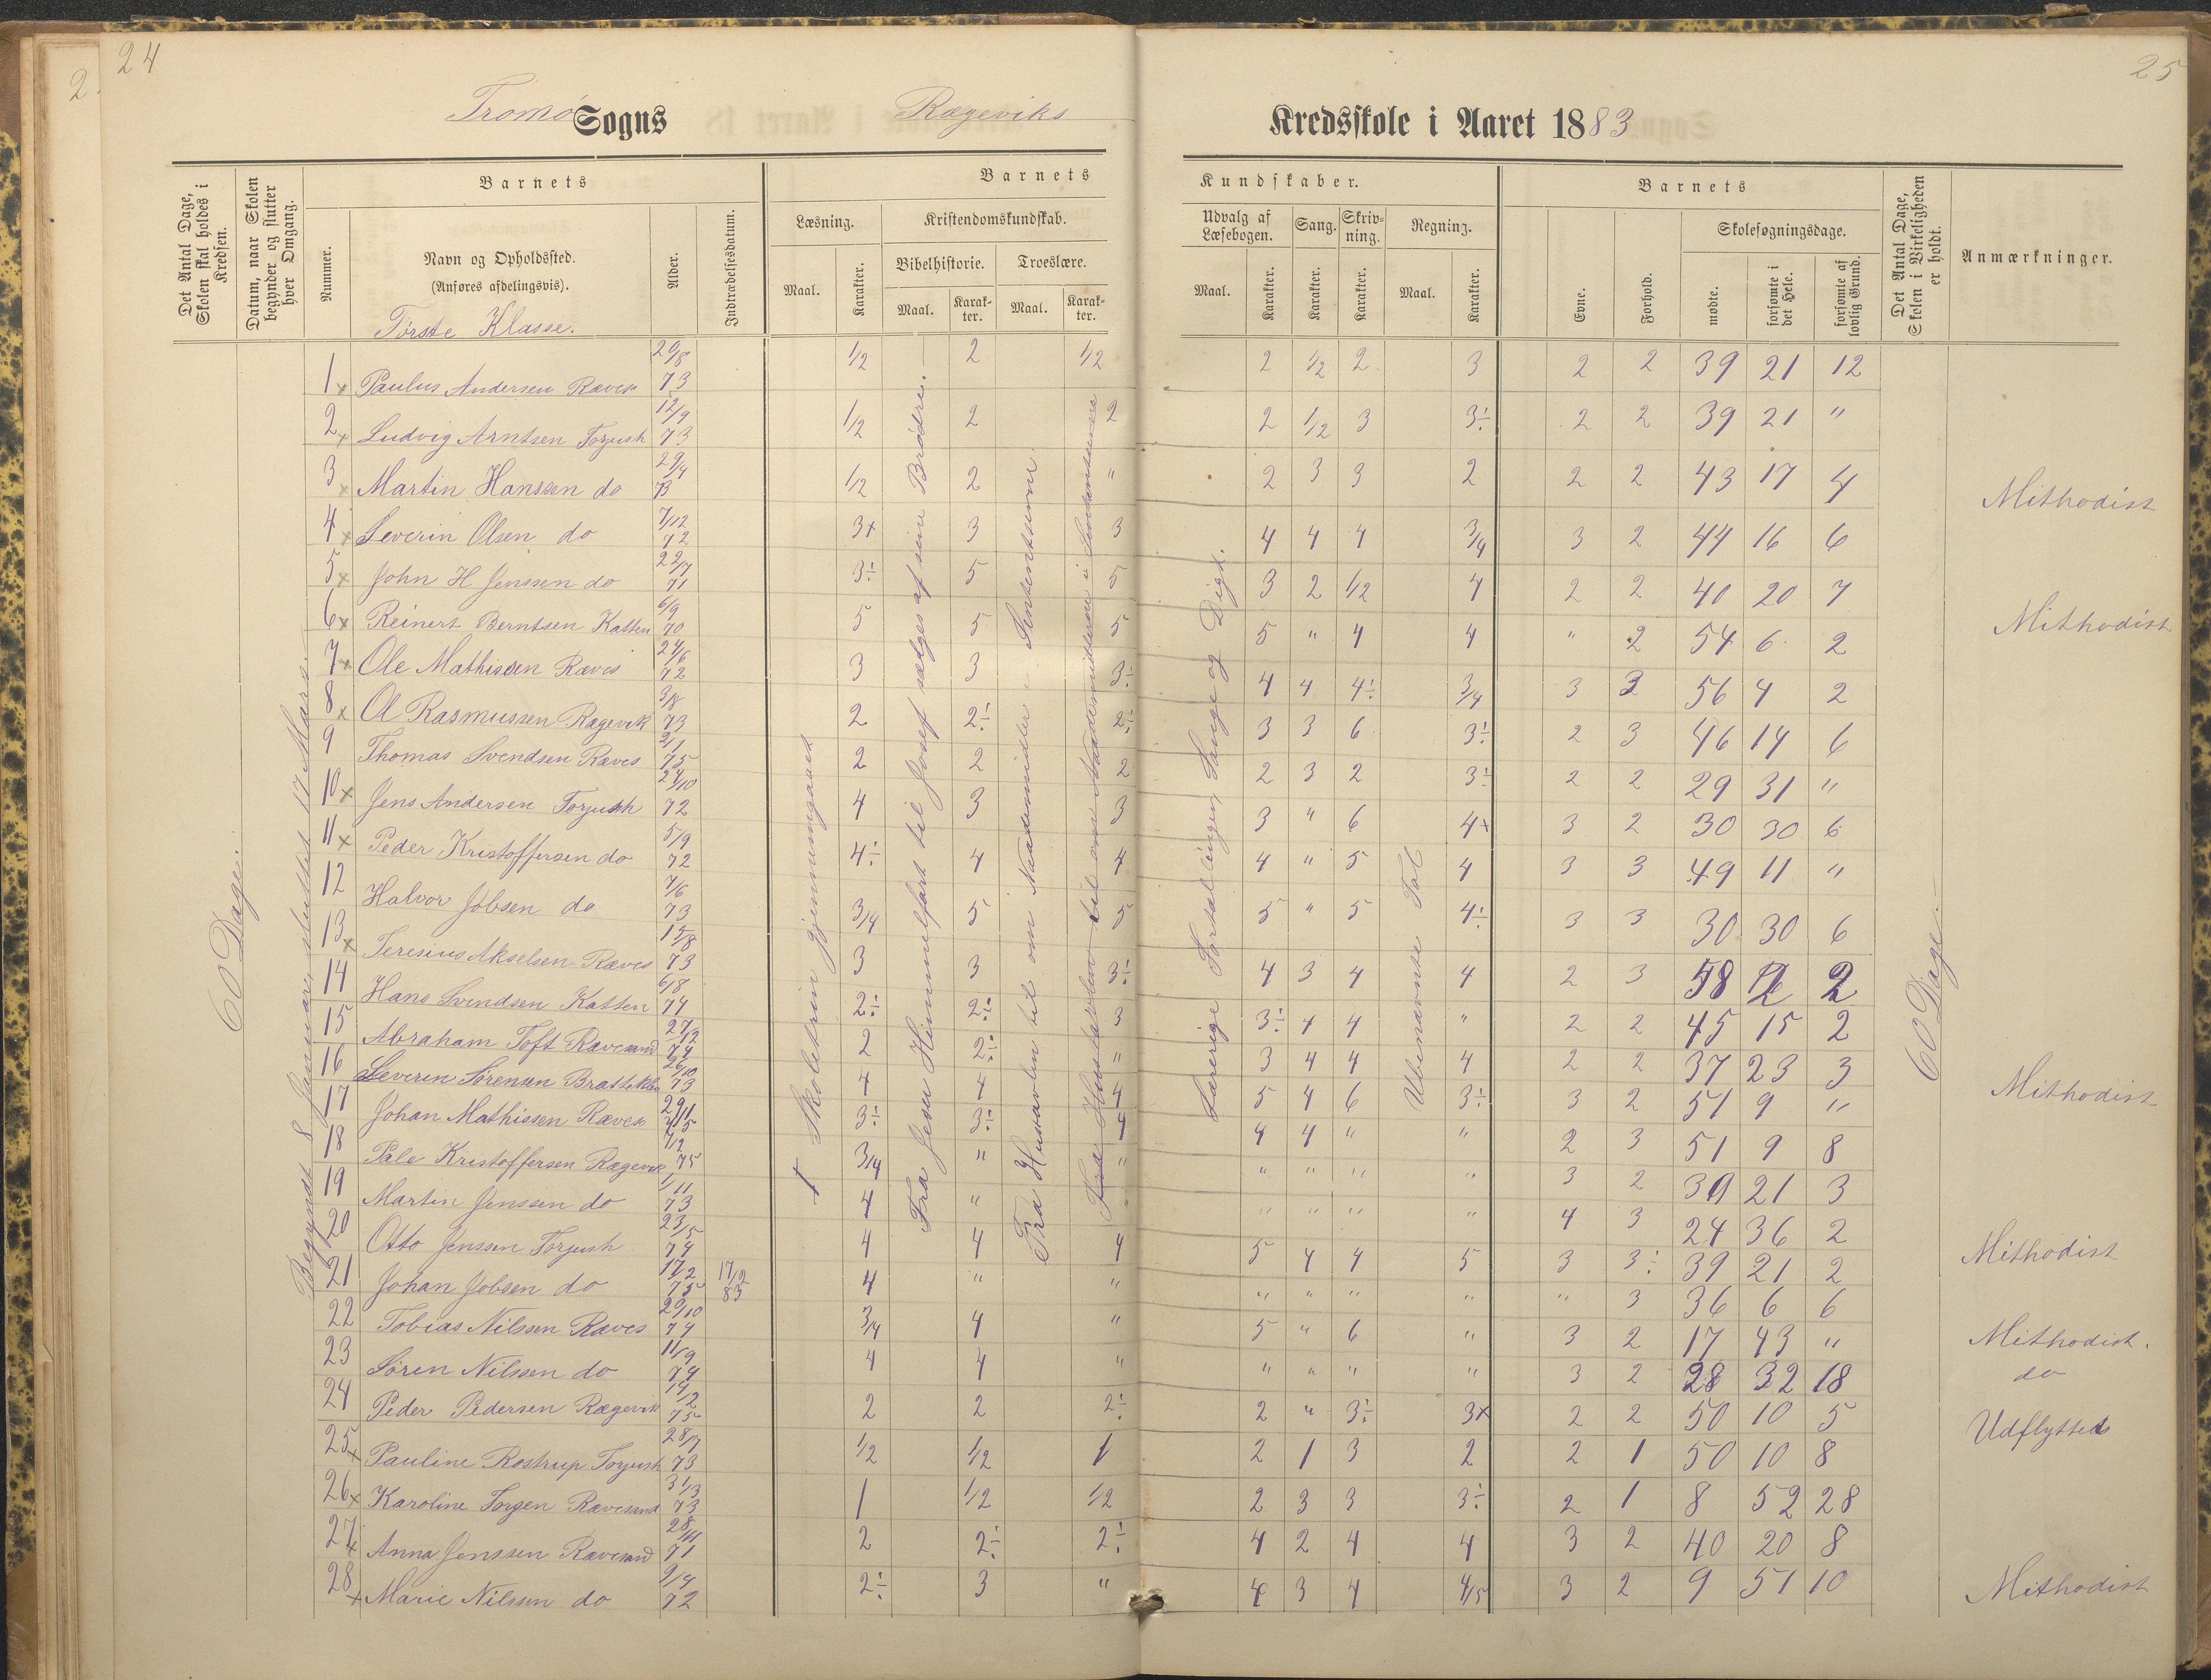 24
25
2
Tromø Sogns Rægeviks Kredsskole i Aaret 1883
Det Antal Dage, Skolen skal holdes i Kredsen.
Datum, naar Skolen begynder og slutter hver Omgang.
Barnets
Nummer.
Navn og Opholdssted.
(Anføres afdelingsvis).
Første Klasse.
Alder.
Indtrædelsesdatum.
Barnets Kundskaber.
Læsning.
Maal.
Karakter.
Kristendomskundskab.
Bibelhistorie.
Maal.
Karakter.
Troeslære.
Maal.
Karakter.
Udvalg af Læsebogen.
Maal.
Karakter.
Sang.
Karakter.
Skrivning.
Karakter.
Regning.
Maal.
Karakter.
Barnets
Evne.
Forhold.
Skolesøgningsdage.
mødte.
forsømte i det Hele.
forsømte af lovlig Grund.
Det Antal Dage, Skolen i Virkeligheden er holdt.
Anmærkninger.
60 Dage.
Begyndt 8 Januar, sluttet 17 Mars.
Skoletrin gjennemgaaed
Fra Jesu Himmelfart til Josef sælges af sine Brødre.
Fra Hustavlen til om Naademidler
Fortællinger, Sange og Digt.
Ubenævnte Tal
60 Dage.
1 x Paulus Andersen Ræves 20/8 73 1/2 2 1/2 2 1/2 2 3 2 2 39 21 12
2 x Ludvig Arntsen Torjush 12/9 73 1/2 2 2 2 1/2 3 3÷ 2 2 39 21 "
3 x Martin Hanssen do 29/4 73 1/2 2 " 2 3 3 2 2 2 43 17 4 Mithodist
4 x Severin Olsen do 7/12 72 3+ 3 3 4 4 4 3/4 3 2 44 16 6
5 x John H Jenssen do 22/7 71 3÷ 5 5 3 2 1/2 4 2 2 40 20 7
6 x Reinert Berntsen Katten 6/9 70 5 5 5 5 " 4 4 " 2 54 6 2 Mithodist
7 x Ole Mathissen Ræves 24/6 72 3 3 3÷ 4 4 4÷ 3/4 3 3 56 4 2
8 x Ol Rasmussen Rægevik 3/8 73 2 2÷ 2÷ 3 3 6 3÷ 2 3 46 14 6
9 Thomas Svendsen Ræves 75 2 2 2 2 3 2 3÷ 2 2 29 31 "
10 x Jens Andersen Torjush 24/10 72 4 3 3 3 " 6 4+ 3 2 30 30 6
11 x Peder Kristoffersen do 5/9 72 4÷ 4 4 4 " 5 4 3 3 49 11 "
12 Halvor Jobsen do 7/6 73 3/4 5 5 5 " 5 4÷ 3 3 30 30 6
13 x Teresius Akselsen Ræves 15/8 73 3 3 3÷ 4 3 4 4 2 3 58 2 2
14 Hans Svendsen Katten 6/8 74 2÷ 2÷ 3 3÷ 4 4 " 2 2 45 15 2
15 Abraham Toft Rævesand 27/12 74 2 2÷ " 3 4 4 4 2 2 37 23 3
16 Severin Sørensen 26/10 73 4 4 4 5 4 6 3÷ 3 2 51 9 " Mithodist
17 Johan Mathissen Ræves 29/11 75 3÷ 3÷ 4 4 4 " " 2 3 51 9 8
18 Pale Kristoffersen Rægevik 7/12 75 3/4 " " " " " " 3 2 39 21 3
19 Martin Jenssen do 1/11 73 4 " " " " " " 4 3 24 36 2
20 Otto Jenssen Torjush 23/5 74 4 4 4 5 4 4 5 3 3÷ 39 21 2 Mithodist
21 Johan Jobsen do 17/2 75 17/2 83 4 " " " " " " " 3 36 6 6
22 Tobias Nilssen Ræves 20/10 74 3/4 4 " 5 " 6 " 3 2 17 43 " Mithodist.
23 Søren Nilssen do 11/9 74 4 4 " " " " " 3 2 28 32 18 do
24 Peder Pedersen Rægevik 14/2 75 2 2 2÷ 2 " 3÷ 3+ 2 2 50 10 5 Udflytted
25 x Pauline Rostrup Torjush 28/7 73 1/2 1/2 1 2 1 3 2 2 1 50 10 8
26 x Karoline Torgen Rævesand 31/3 73 1 1/2 1/2 2 3 3 3÷ 2 1 8 52 28
27 x Anna Jenssen Rævesand 28/11 71 2 2÷ 2÷ 4 2 4 4 3 2 40 20 8
28 x Marie Nilssen do 2/4 72 2÷ 3 " 4 3 4 4/5 3 2 9 51 10 Mithodist